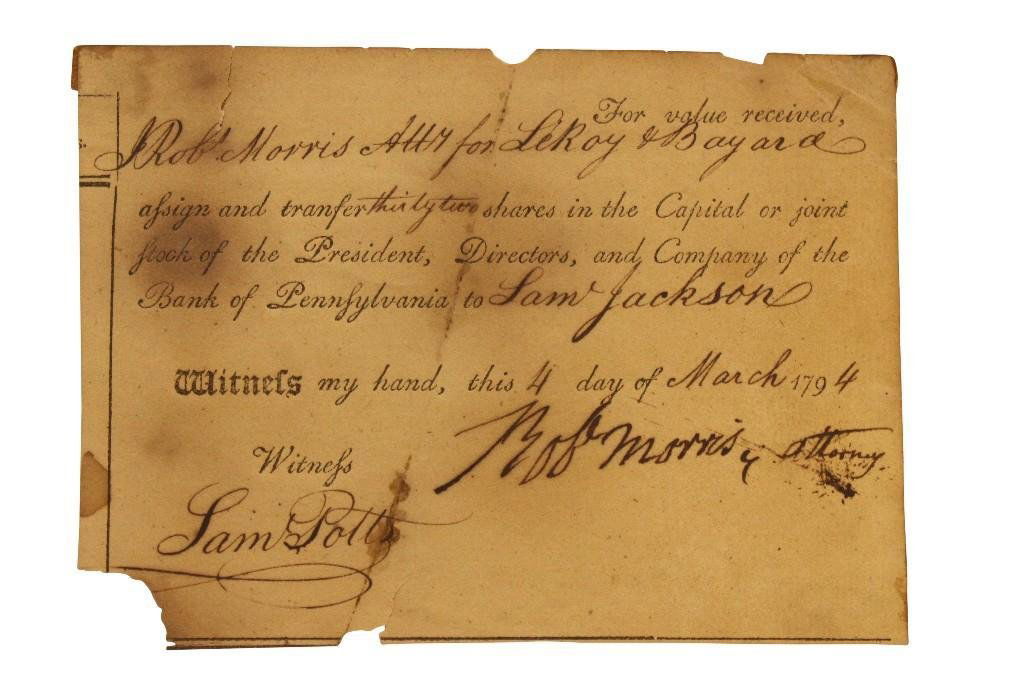 For value received,
I Robt. Morris Atty for LeRoy & Bayard
aſsign and tranſfer thirty two shares in the Capital or joint
ſtock of the President, Directors, and Company of the
Bank of Pennſylvania to Saml Jackson
Witneſs my hand, this 4 day of March 1794
Robt Morris, attorney
Witneſs
Saml Potts